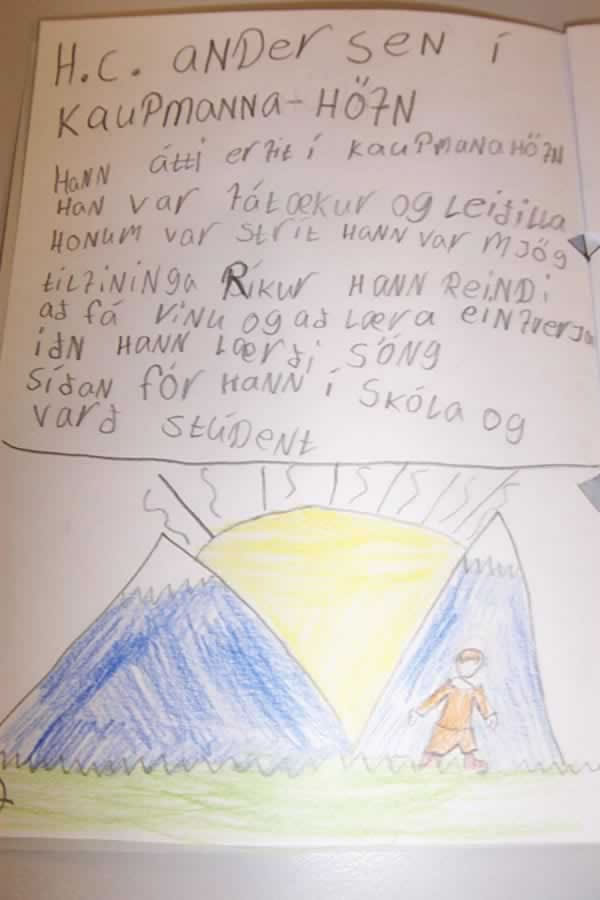 H.C. ANDerSEN í
KAUPMANNA-HÖFN
HANN átti erfit í KAUPMANAHÖFN
HAN var fátækur og Leiðilla
HONUM var Strít HANN var MJÖg
tilfininga Ríkur HANN REINDI
að fá vinu og að Læra EINhverja
iðn HANN Lærði SÓNg
Síðan fór HANN í SKÓLA og
varð StÚDENt